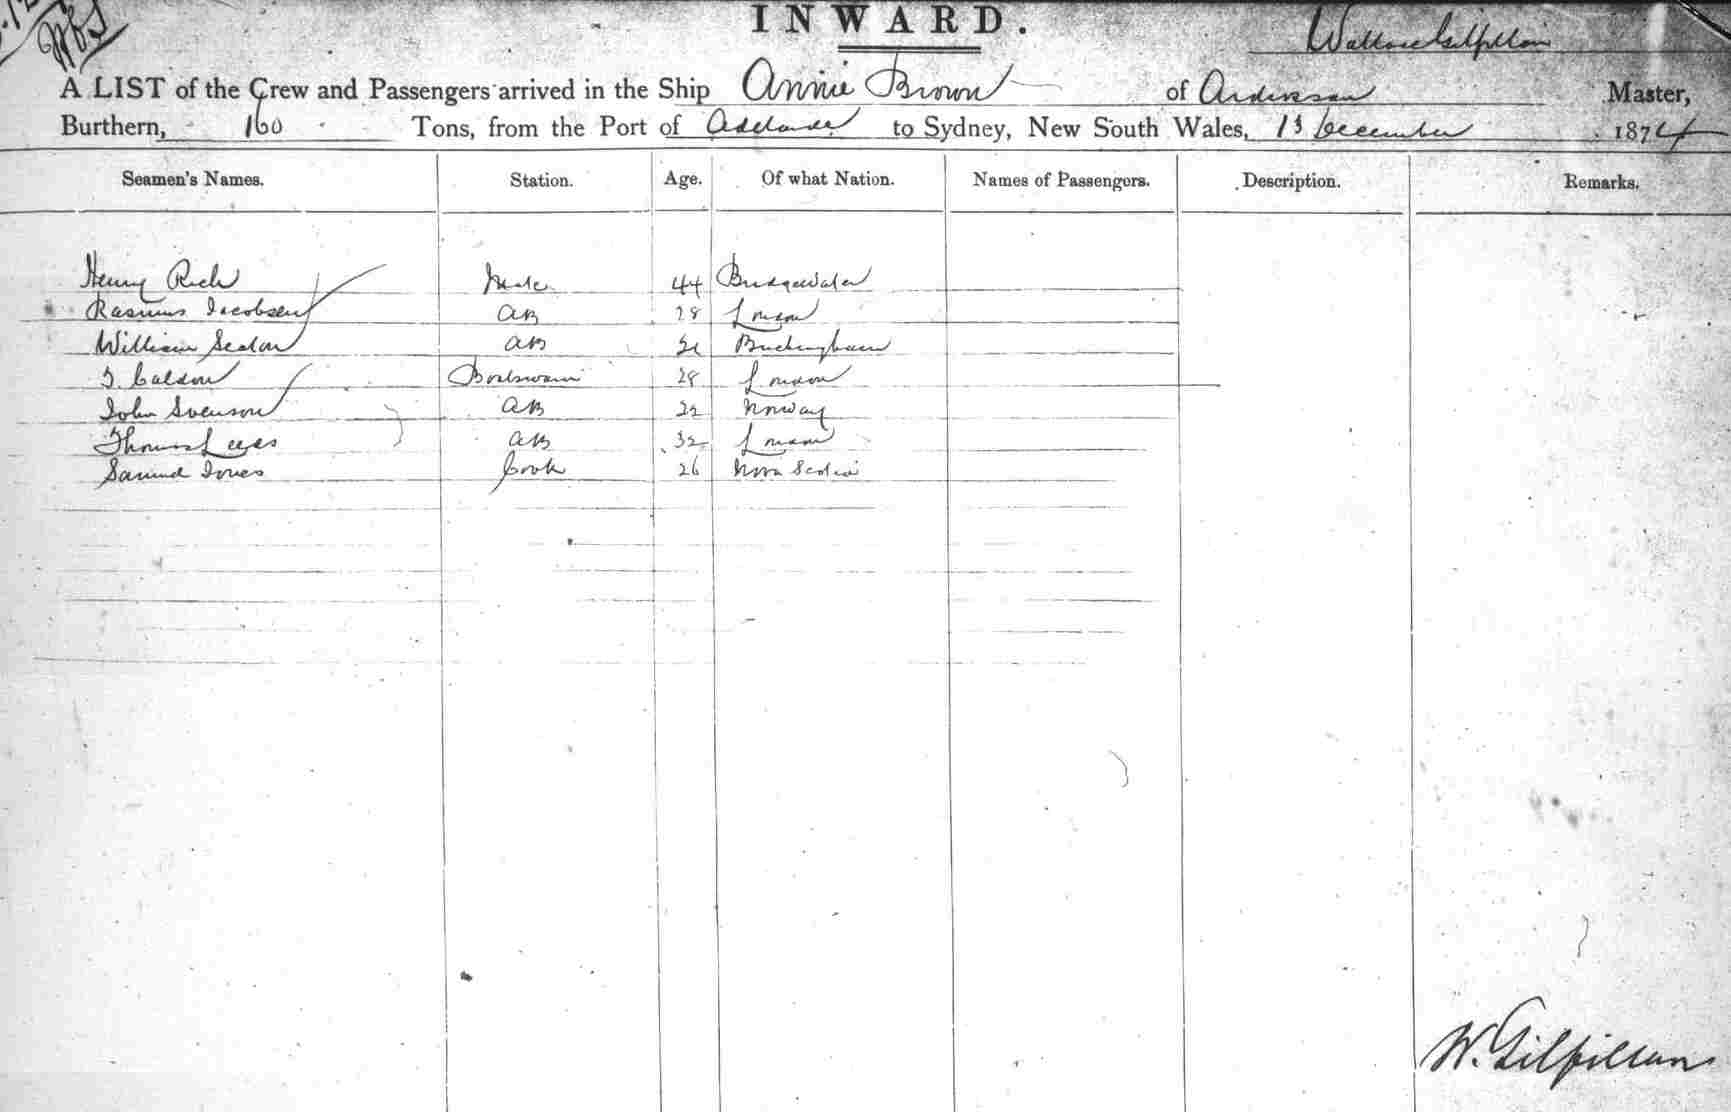 INWARD.
Wallace Gilfillan
A LIST of the Crew and Passengers arrived in the Ship Annie Brown of Master,
Burthern, 160 Tons, from the Port of Adelaide to Sydney, New South Wales, 13 December 1874
Seamen's Names. Station. Age. Of what Nation. Names of Passengers. Description. Remarks.
Henry Rich Mate 44 Bridgewater
Rasmus Jacobsen AB 28 London
William AB Buckingham
Boatswain 28 London
John Svenson AB 22 Norway
Thomas Lees AB 32 London
Samuel Jones Cook 26 Nova Scotia
W. Gilfillan